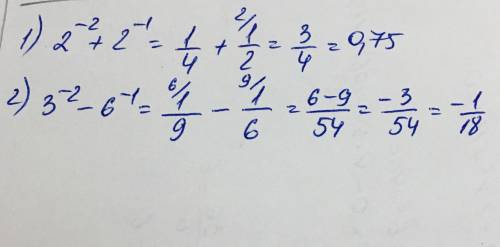 1) 2⁻² + 2⁻¹ = 1/4 + ²⁄1/2 = 3/4 = 0,75
2) 3⁻² - 6⁻¹ = ⁶⁄1/9 - ⁹⁄1/6 = 6-9/54 = -3/54 = -1/18